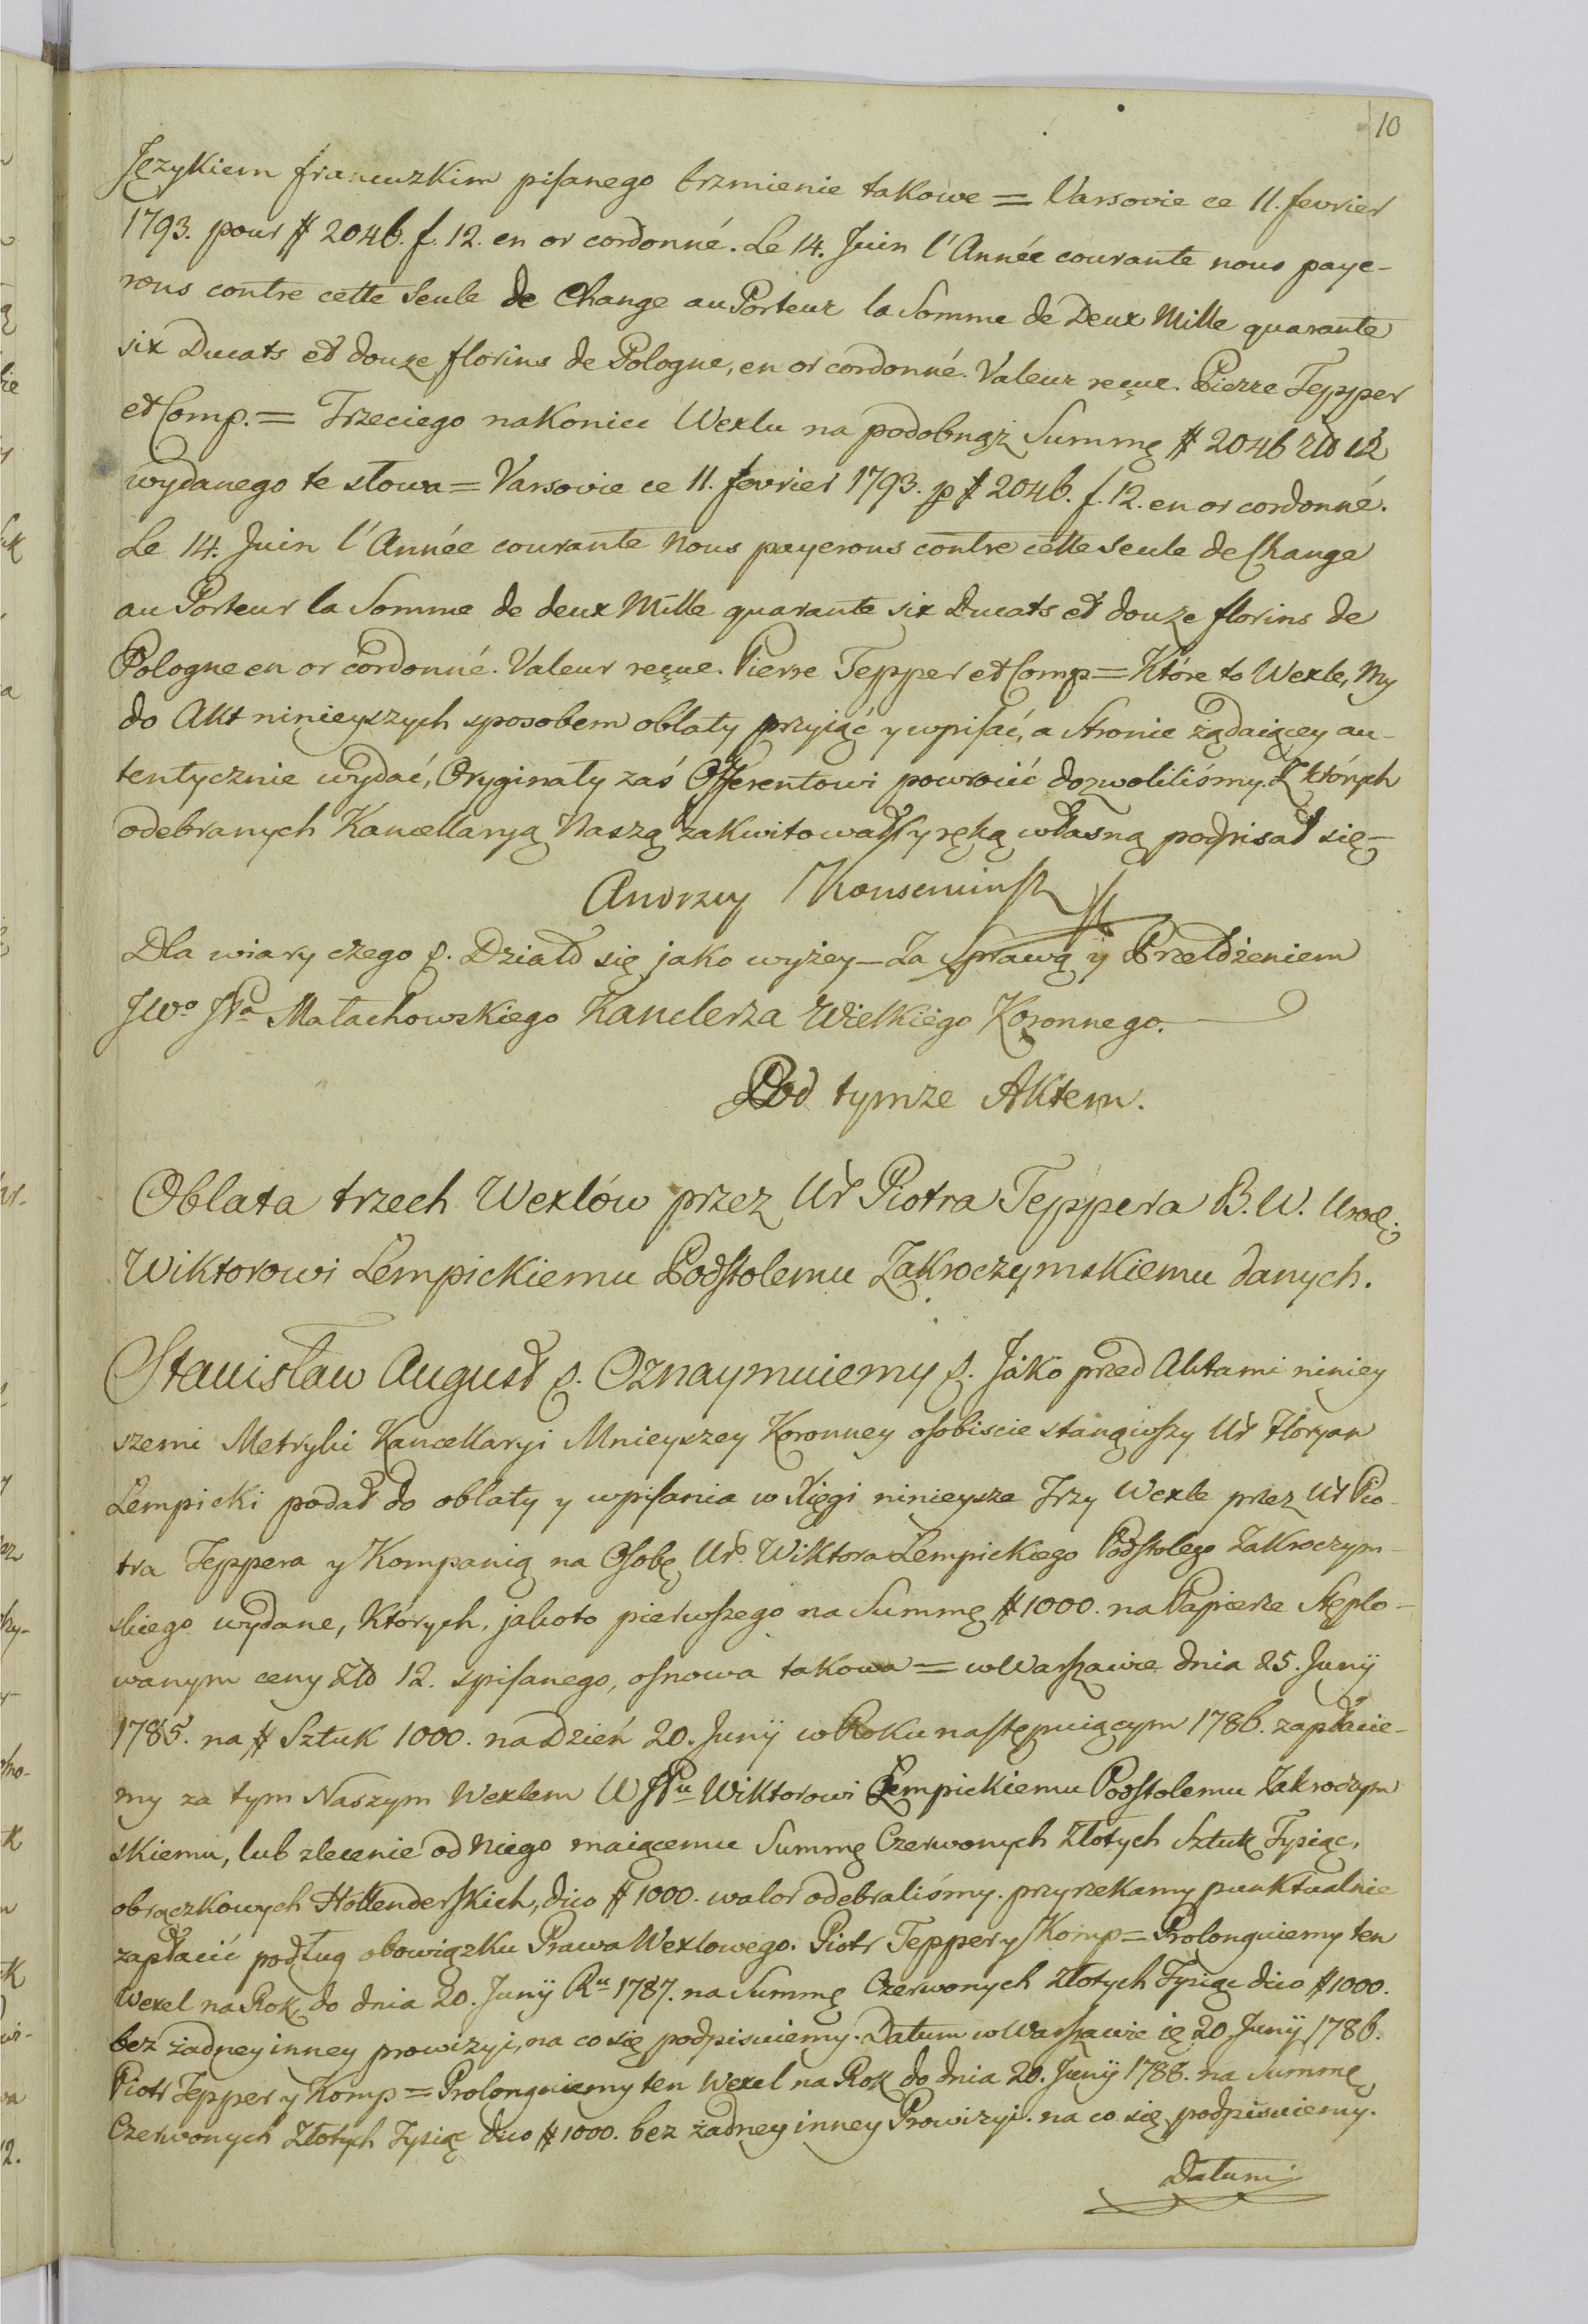 10
Językiem francuzkim pisanego brzmienie takowe = Varsovie ce 11. fevrier
1793. pour # 2046. f. 12. en or cordonné. Le 14. Juin l'Année courante nous paye-
rons contre cette Seule de Change au Porteur la Somme de Deux Mille quarante
six Ducats et douze florins de Pologne, en or cordonné. Valeur reçue. Pierre Tepper
et Comp. = Trzeciego nakoniec Wexlu na podobnąż Summę # 2046 zł 12
wydanego te słowa = Varsovie ce 11. fevrier 1793. p # 2046. f. 12. en or cordonné.
Le 14. Juin l'Année courante Nous payerons contre cette Seule de Change
au Porteur la Somme de deux Mille quarante six Ducats et douze florins de
Pologne en or cordonné. Valeur reçue. Pierre Tepper et Comp = Które to Wexle, My
do Akt ninieyszych sposobem oblaty przyiąć y wpisać, a Stronie żądaiącey au-
tentycznie wydać, Oryginały zaś Offerentowi powrócić dozwoliliśmy. Z których
odebranych Kancellaryą Naszą zakwitował y ręką własną podpisał się –
Andrzey
Dla wiary czego p. Działo się jako wyżey – Za Sprawą y Przełożeniem
JWo JPa Małachowskiego Kanclerza Wielkiego Koronnego.
Pod tymze Aktem.
Oblata trzech Wexlów przez Ur Piotra Teppera B. W. Urod:
Wiktorowi Lempickiemu Podstolemu Zakroczymskiemu danych.
Stanisław August p. Oznaymuiemy p. Jako przed Aktami niniey
szemi Metryki Kancellaryi Mnieyszey Koronney osobiscie stanąwszy Ur Floryan
Lempicki podał do oblaty y wpisania w Xięgi ninieysze Trzy Wexle przez Ur Pio-
tra Teppera y Kompanią na Osobę Uro Wiktora Lempickiego Podstolego Zakroczym-
skiego wydane, Których, jakoto pierwszego na Summę # 1000. na Papierze Stęplo-
wanym ceny Zło 12. spisanego, osnowa takowa = w Warszawie dnia 25. Junij
1785. na # Sztuk 1000. na Dzień 20. Junij w Roku następuiącym 1786. zapłacie-
my za tym Naszym Wexlem WJPu Wiktorowi Lempickiemu Podstolemu Zakroczym
skiemu, lub zlecenie od Niego maiącemu Summę Czerwonych Złotych Sztuk Tysiąc,
obrączkowych Hollenderskich, dico # 1000. walor odebraliśmy. przyrzekamy punktualnie
zapłacić podług obowiązku Prawa Wexlowego. Piotr Tepper y Komp = Prolonguiemy ten
Wexel na Rok do dnia 20. Junij Ru 1787. na Summę Czerwonych Złotych Tysiąc dico # 1000.
bez żadney inney prowizyi, na co się podpisuiemy. Datum w Warszawie 20 Junij 1786.
Piotr Tepper y Komp = Prolonguiemy ten Wexel na Rok do dnia 20. Junij 1788. na Summę
Czerwonych Złotych Tysiąc dico # 1000. bez żadney inney Prowizyi. na co się podpisuiemy.
Datum